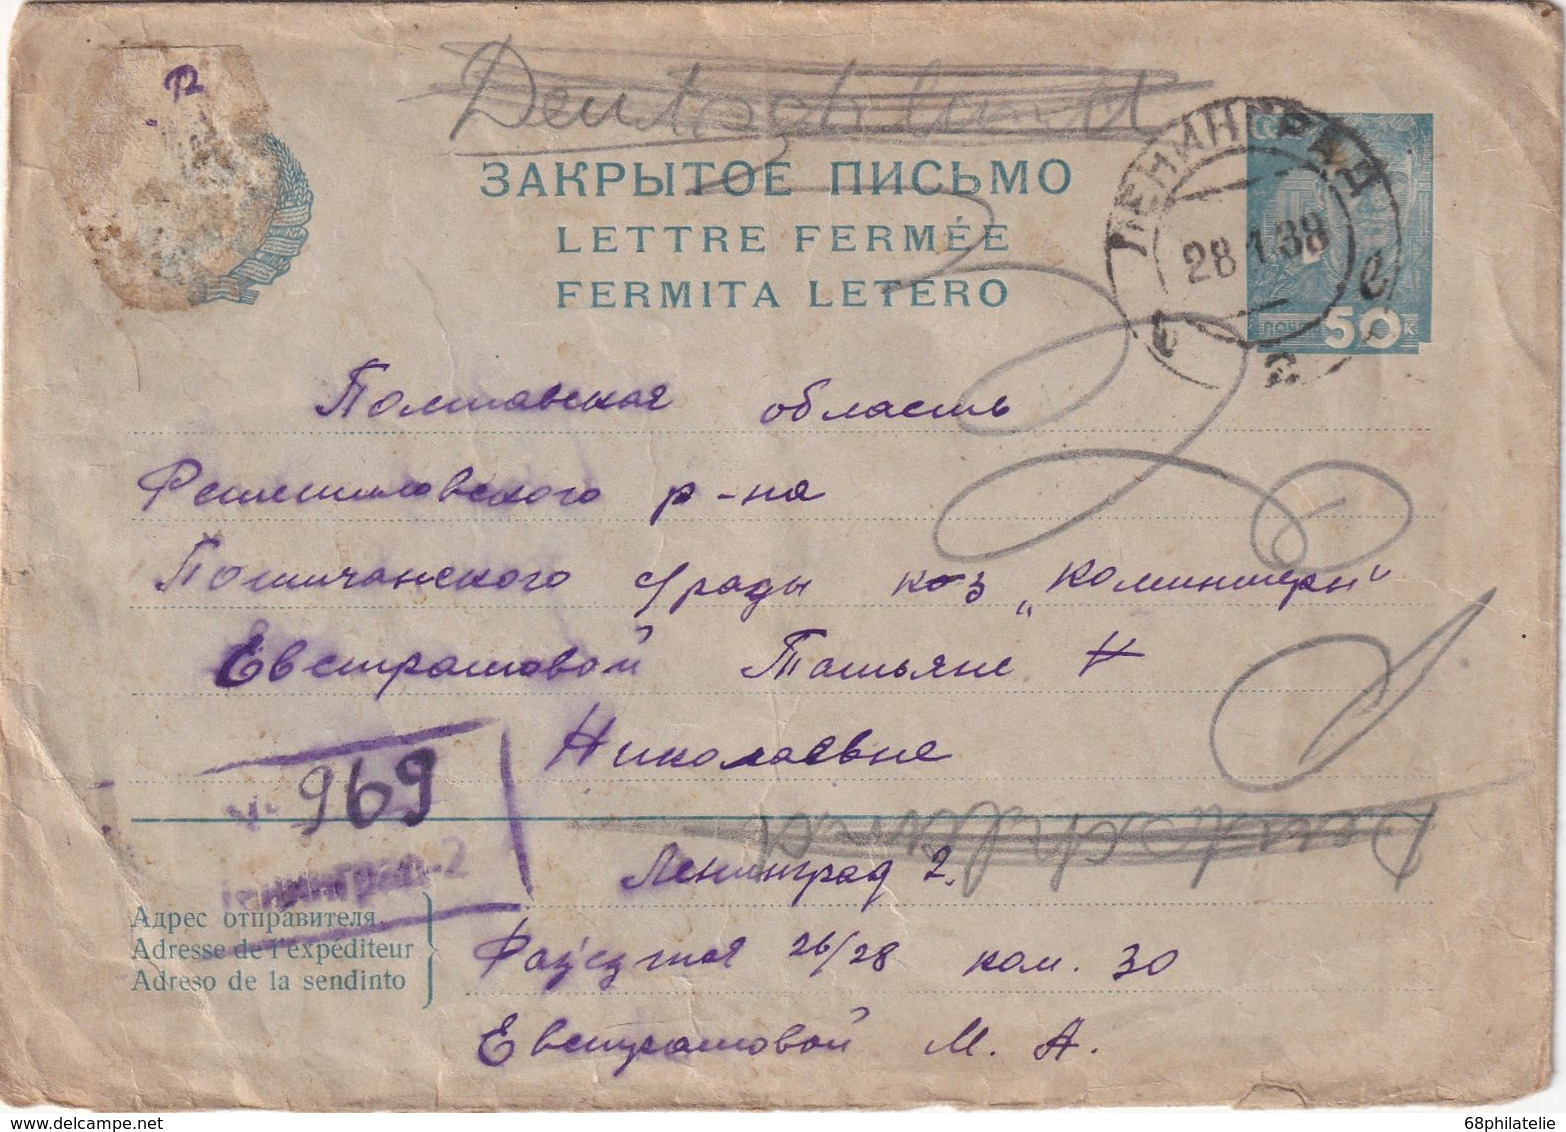 Deutschland
ЗАКРЫТОЕ ПИСЬМО
LETTRE FERMÉE
FERMITA LETERO
ЛЕНИНГРАД
28 1.38
50 К
Полтавская область
р-на
с/рады коз „Коминтерн"
Евстратовой Татьяне Н
Николаевне
№ 969
Ленинград-2
Deutschland
Ленинград 2.
Адрес отправителя
Adresse de l'expéditeur
Adreso de la sendinto
Разъезжая 26/28 ком. 30
Евстратовой М. А.
delcampe.net
68philatelie